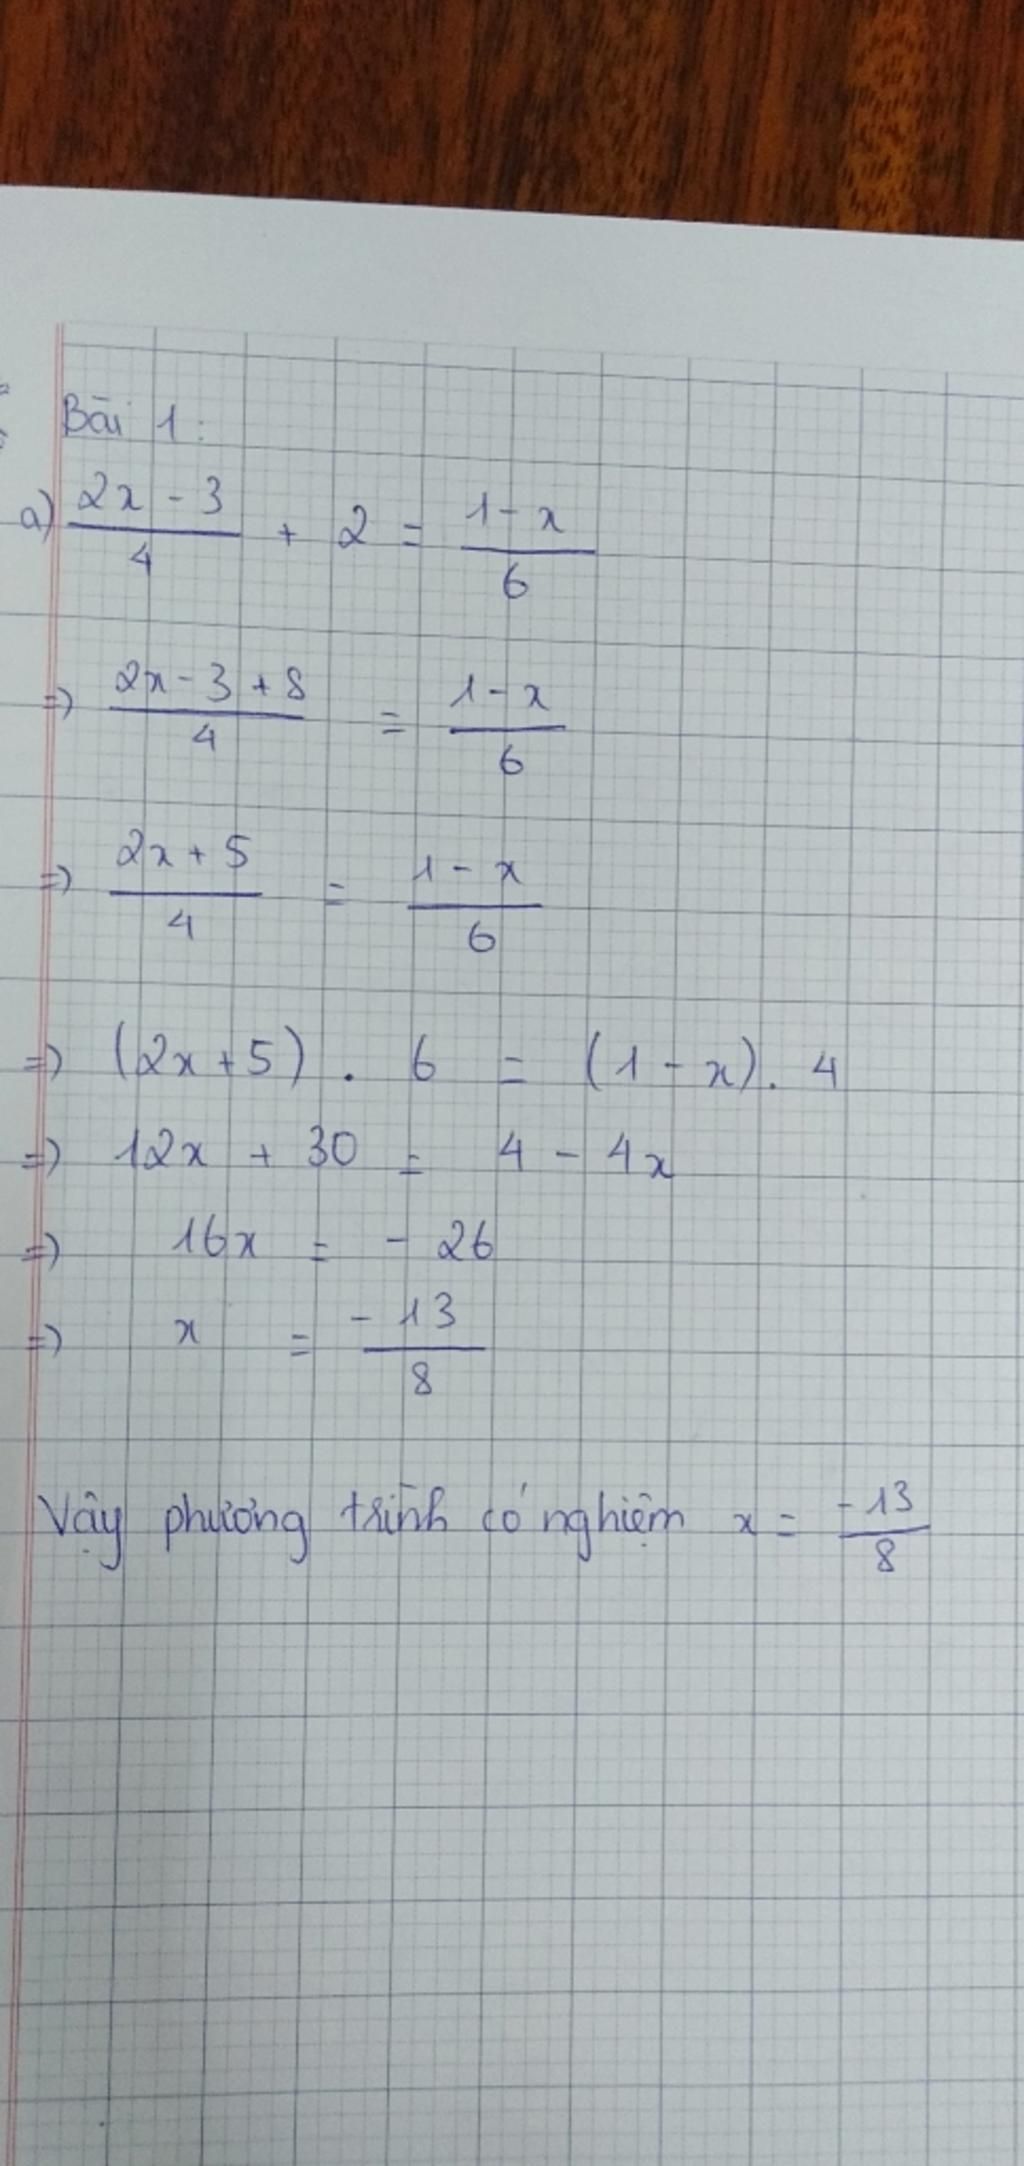 Bài 1:
a) (2x - 3)/4 + 2 = (1 - x)/6
=) (2x - 3 + 8)/4 = (1 - x)/6
=) (2x + 5)/4 = (1 - x)/6
=) (2x + 5) . 6 = (1 - x) . 4
=) 12x + 30 = 4 - 4x
=) 16x = - 26
=) x = -13/8
Vậy phương trình có nghiệm x = -13/8